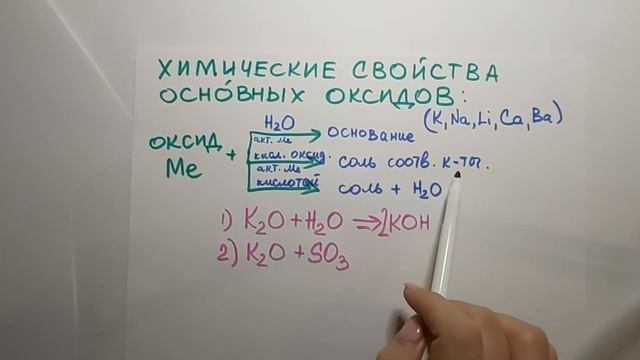 ХИМИЧЕСКИЕ СВОЙСТВА
ОСНО́ВНЫХ ОКСИДОВ:
(K, Na, Li, Ca, Ba)
H₂O
ОКСИД Me + акт. Me → ОСНОВАНИЕ
кисл. оксид. → соль соотв. к-ты.
акт. Me
кислотой → соль + H₂O
1) K₂O + H₂O ⇒ 2KOH
2) K₂O + SO₃